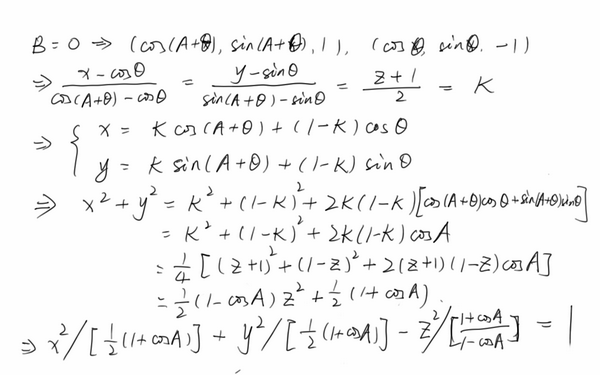 B = 0 ⇒ (cos(A+θ), sin(A+θ), 1), (cosθ, sinθ, -1)
⇒ (x - cosθ)/(cos(A+θ) - cosθ) = (y - sinθ)/(sin(A+θ) - sinθ) = (z+1)/2 = K
⇒ { x = K cos(A+θ) + (1-K) cosθ
y = K sin(A+θ) + (1-K) sinθ
⇒ x² + y² = K² + (1-K)² + 2K(1-K)[cos(A+θ)cosθ + sin(A+θ)sinθ]
= K² + (1-K)² + 2K(1-K) cosA
= 1/4 [(z+1)² + (1-z)² + 2(z+1)(1-z) cosA]
= 1/2 (1-cosA) z² + 1/2 (1+cosA).
⇒ x²/[1/2 (1+cosA)] + y²/[1/2 (1+cosA)] - z²/[(1+cosA)/(1-cosA)] = 1